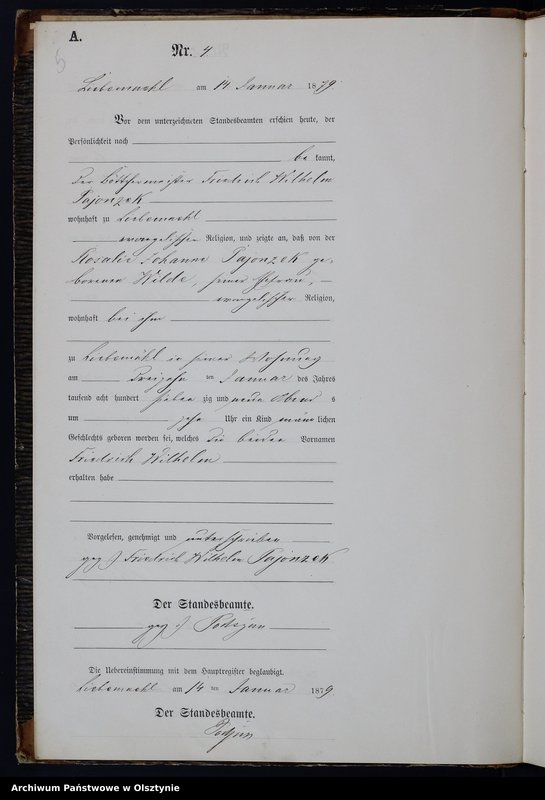 A.
5
Nr. 4
Liebemühl am 14 Januar 1879
Vor dem unterzeichneten Standesbeamten erschien heute, der
Persönlichkeit nach
be kannt,
der Böttchermeister Friedrich Wilhelm
Pajonzek
wohnhaft zu Liebemühl
evangelischer Religion, und zeigte an, daß von der
Rosalie Johanne Pajonzek ge-
borenen Wilde, seiner Ehefrau,
evangelischer Religion,
wohnhaft bei ihm
zu Liebemühl in seiner Wohnung
am Dreizehn ten Januar des Jahres
tausend acht hundert sieben zig und neun Abend s
um zehn Uhr ein Kind männ lichen
Geschlechts geboren worden sei, welches die beiden Vornamen
Friedrich Wilhelm
erhalten habe
Vorgelesen, genehmigt und unterschrieben
gez:) Friedrich Wilhelm Pajonzek
Der Standesbeamte.
gez:)
Die Uebereinstimmung mit dem Hauptregister beglaubigt.
Liebemühl am 14 ten Januar 1879
Der Standesbeamte.
Archiwum Państwowe w Olsztynie